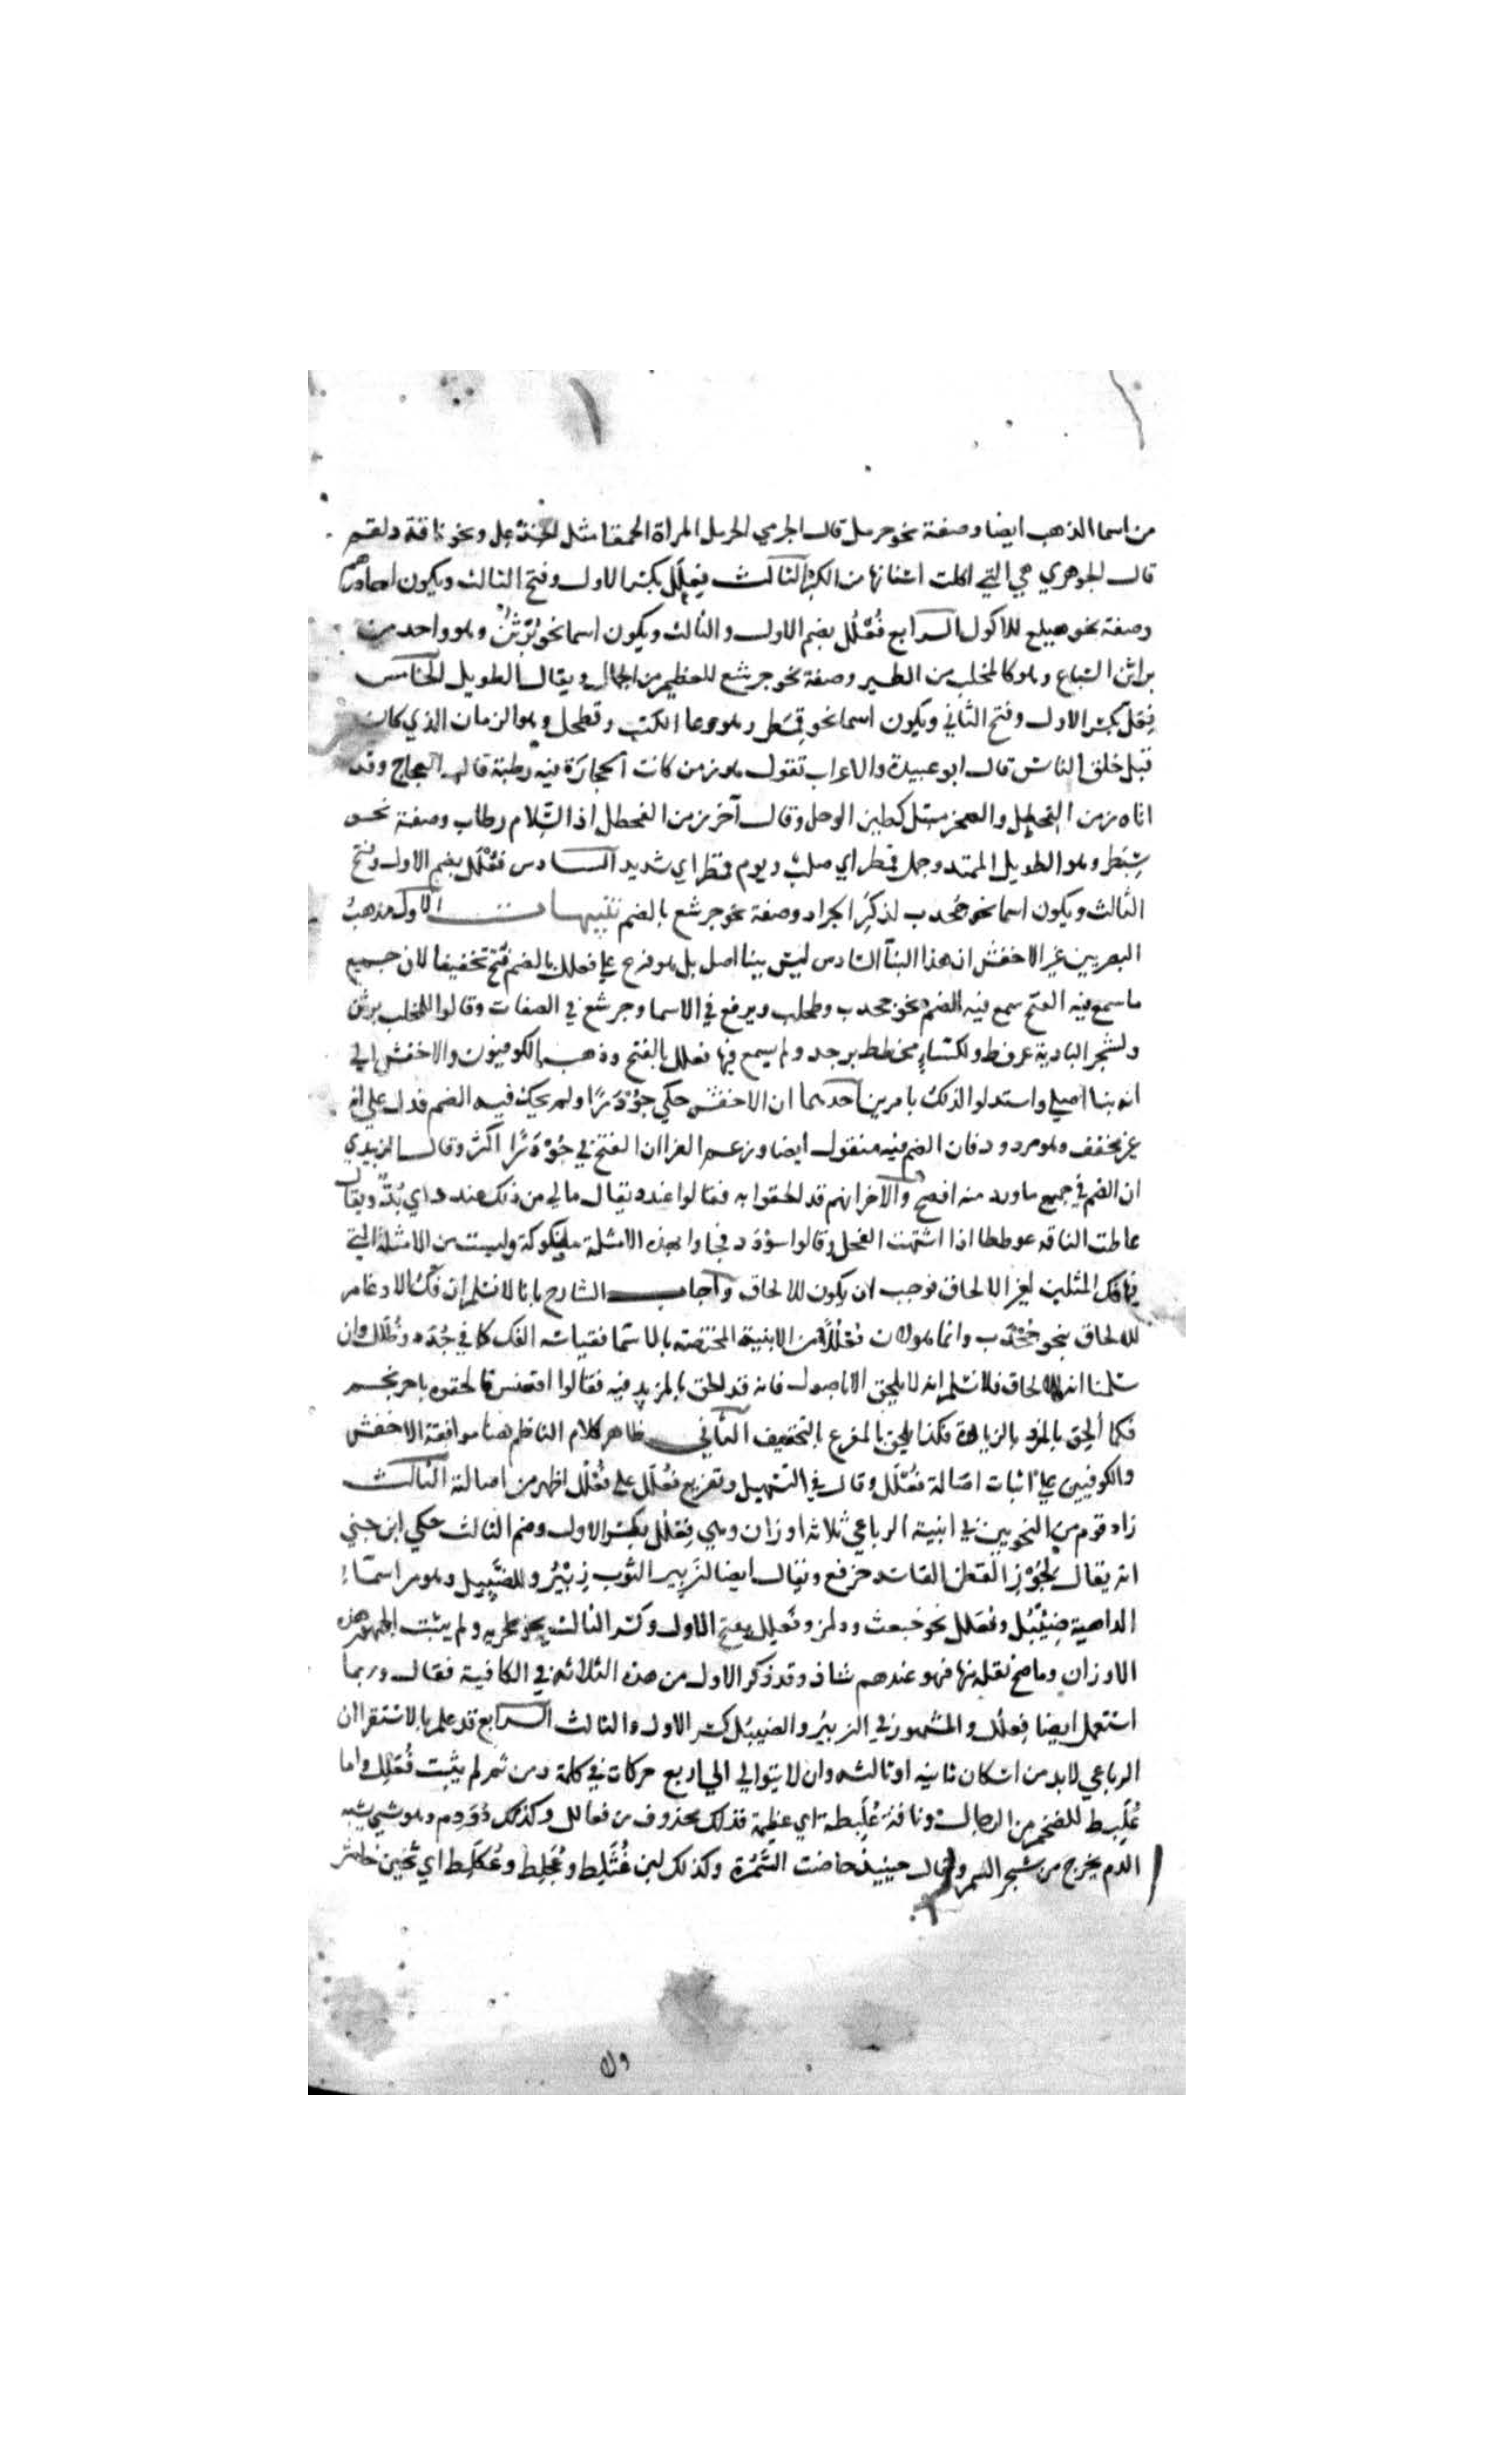 من اسما الذهب ايضا وصفة نحو حرمل قال الجرمي الحرمل المراة الحمقا مثل الخذعل ونحو ناقة دلقم
قال الجوهري هي التي اكلت اسنانها من الكبر الثالث فِعلَل بكسر الاول وفتح الثالث ويكون اسما نحو درهم
وصفة نحو هبلع للاكول الرابع فُعْلُل بضم الاول والثالث ويكون اسما نحو بُرْثُن وهو واحد من
براثن السباع وهو كالمخلب من الطير وصفة نحو جرشع للعظيم من الجمال ويقال الطويل الخامس
فِعَلّ بكسر الاول وفتح الثاني ويكون اسما نحو قِمَطر وهو وعا الكتب وفطحل وهو الزمان الذي كان
قبل خلق الناس قال ابو عبيدة والاعراب تقول هو زمن كانت الحجارة فيه رطبة قال العجاج وقد
اتاه زمن الفطحل والصخر مبتل كطين الوحل وقال آخر زمن الفطحل اذ السِّلام رطاب وصفة نحو
سِبَطر وهو الطويل الممتد وجمل قمطر اي صلب ويوم قمطر اي شديد السادس فُعْلَل بضم الاول وفتح
الثالث ويكون اسما نحو جُخدب لذكر الجراد وصفة نحو جرشع بالضم تنبيهات الاول مذهب
البصريين غير الاخفش ان هذا البنا السادس ليس ببنا اصل بل هو فرع على فعلل بالضم فتح تخفيفا لان جميع
ما سمع فيه الفتح سمع فيه الضم نحو جخدب وطحلب وبرقع في الاسما وجرشع في الصفات وقالوا للمخلب برثن
ولشجر البادية عرفط ولكساءٍ مخطط برجد ولم يسمع فيها فعلل بالفتح وذهب الكوفيون والاخفش الي
انه بنا اصلي واستدلوا لذلك بامرين احدهما ان الاخفش حكي جُؤْذَرًا ولم يحك فيه الضم فدل علي انه
غير مخفف وهو مردود فان الضم فيه منقول ايضا وزعم الفرا ان الفتح في جُؤْذَرًا اكثر وقال الزبيدي
ان الضم في جميع ما ورد منه افصح والاخر انهم قد الحقوا به فقالوا عندد يقال مالي من ذلك عندد اي بُدّ ويقال
عاطت الناقه عوططا اذا اشتهت الفحل وقالوا سؤدد فجاوا بهذه الامثلة مفكوكة وليست من الامثلة التي
فيها فك المثلين لغير الالحاق فوجب ان يكون للالحاق واجاب الشارح بانا لا نسلم ان فك الادغام
للالحاق بنحو جُخْدَب وانما هو لان فُعْلَلًا من الابنية المختصة بالاسما فقياسه الفك كما في جُدَد وظُلَل وان
سلمنا انه للالحاق فلا نسلم انه لا يلحق الا بالاصول فانه قد الحق بالمزيد فيه فقالوا اقعنسس فالحقوه باحرنجم
فكما أُلحق بالفرع بالزيادة فكذا يلحق بالفرع بالتخفيف الثاني ظاهر كلام الناظم هنا موافقة الاخفش
والكوفيين علي اثبات اصالة فُعْلَل وقال في التسهيل وتفريع فُعْلَل علي فُعْلُل اظهر من اصالته الثالث
زاد قوم من النحويين في ابنية الرباعي ثلاثه اوزان وهي فِعْلُل بكسر الاول وضم الثالث حكي ابن جني
انه يقال لجَوْزِ القطن الفاسد خرفع ويقال ايضا لزبير الثوب زِئْبُر وللضئبل وهو من اسماء
الداهية ضِئْبُل وفُعَلل نحو خبعث ودلمز وفَعْلِل بفتح الاول وكسر الثالث نحو طحربه ولم يثبت الجمهور هذه
الاوزان وما صح نقله منها فهو عندهم شاذ وقد ذكر الاول من هذه الثلاثه في الكافية فقال وربما
استعمل ايضا فِعلُل والمشهور في الزئبر والضئبل كسر الاول والثالث الرابع قد علم بالاستقرا ان
الرباعي لابد من اسكان ثانيه او ثالثه وان لا يتوالي اربع حركات في كلمة ومن ثم لم يثبت فُعَلِل واما
عُلَبِط للضخم من الرجال وناقة عُلَبِطة اي عظيمة فذلك محذوف من فعالل وكذلك دُوَدِم وهو شي يشبه
الدم يخرج من شجر السمر ويقال حينيذ حاضت السَّمُرَة وكذلك لبن عُثَلِط وعُجَلِط وعُكَلِط اي ثخين خاثر
ولا